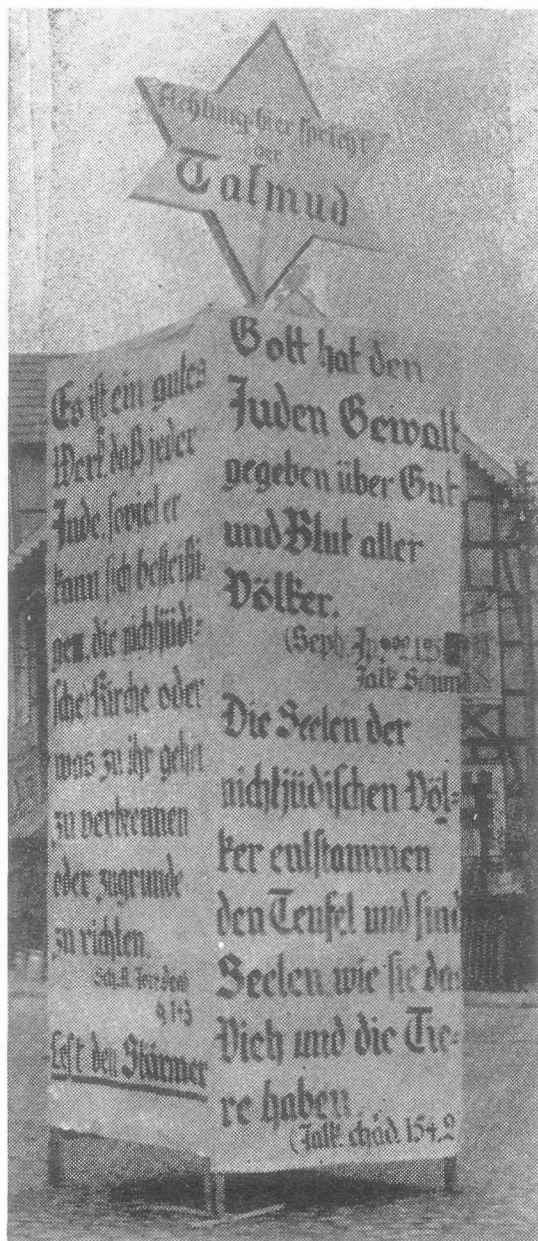 Achtung hier spricht
der
Talmud
Es ist ein gutes
Werk, daß jeder
Jude, soviel er
kann sich befleißi-
gen, die nichtjüdi-
sche Kirche oder
was zu ihr gehört
zu verbrennen
oder zugrunde
zu richten.
Lest den Stürmer
Gott hat den
Juden Gewalt
gegeben über Gut
und Blut aller
Völker.
(Seph.
Jalk.
Die Seelen der
nichtjüdischen Völ-
ker entstammen
den Teufel und sind
Seelen, wie sie das
Vieh und die Tie-
re haben.
(Jalk. chad. 154,2